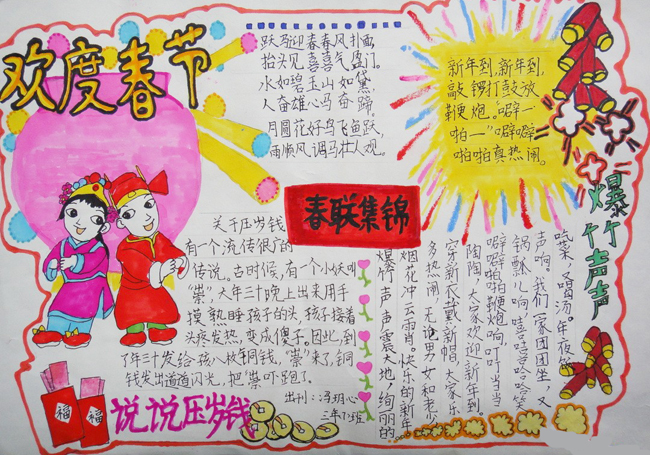 欢度春节
跃马迎春春风扑面,
抬头见喜喜气盈门。
水如碧玉山如黛
人奋雄心马奋蹄。
月圆花好鸟飞鱼跃,
雨顺风调马壮人观。
新年到,新年到,
敲锣打鼓放
鞭炮。"噼一
啪一"噼噼
啪啪真热闹。
春联集锦
关于压岁钱
有一个流传很广的
传说。古时候,有一个小妖叫
"祟",大年三十晚上出来用手
摸熟睡孩子的头,孩子接着
头疼发热,变成傻子。因此,到
了年三十发给孩八枚铜钱,"祟"来了,铜
钱发出道道闪光,把"祟"吓跑了。
说说压岁钱
福
福
出刊:冯玥心
三年(2)班
爆竹声声
爆竹声声震大地,绚丽的
烟花冲云霄,快乐的新年
多热闹,无论男女和老少
穿新衣戴新帽,大家乐
陶陶,大家欢迎新年到。
噼噼啪啪鞭炮响,叮叮当当
锅瓢儿响,嘻嘻哈哈笑
声响。我们一家团团坐,又
吃菜,又喝汤。年夜饭